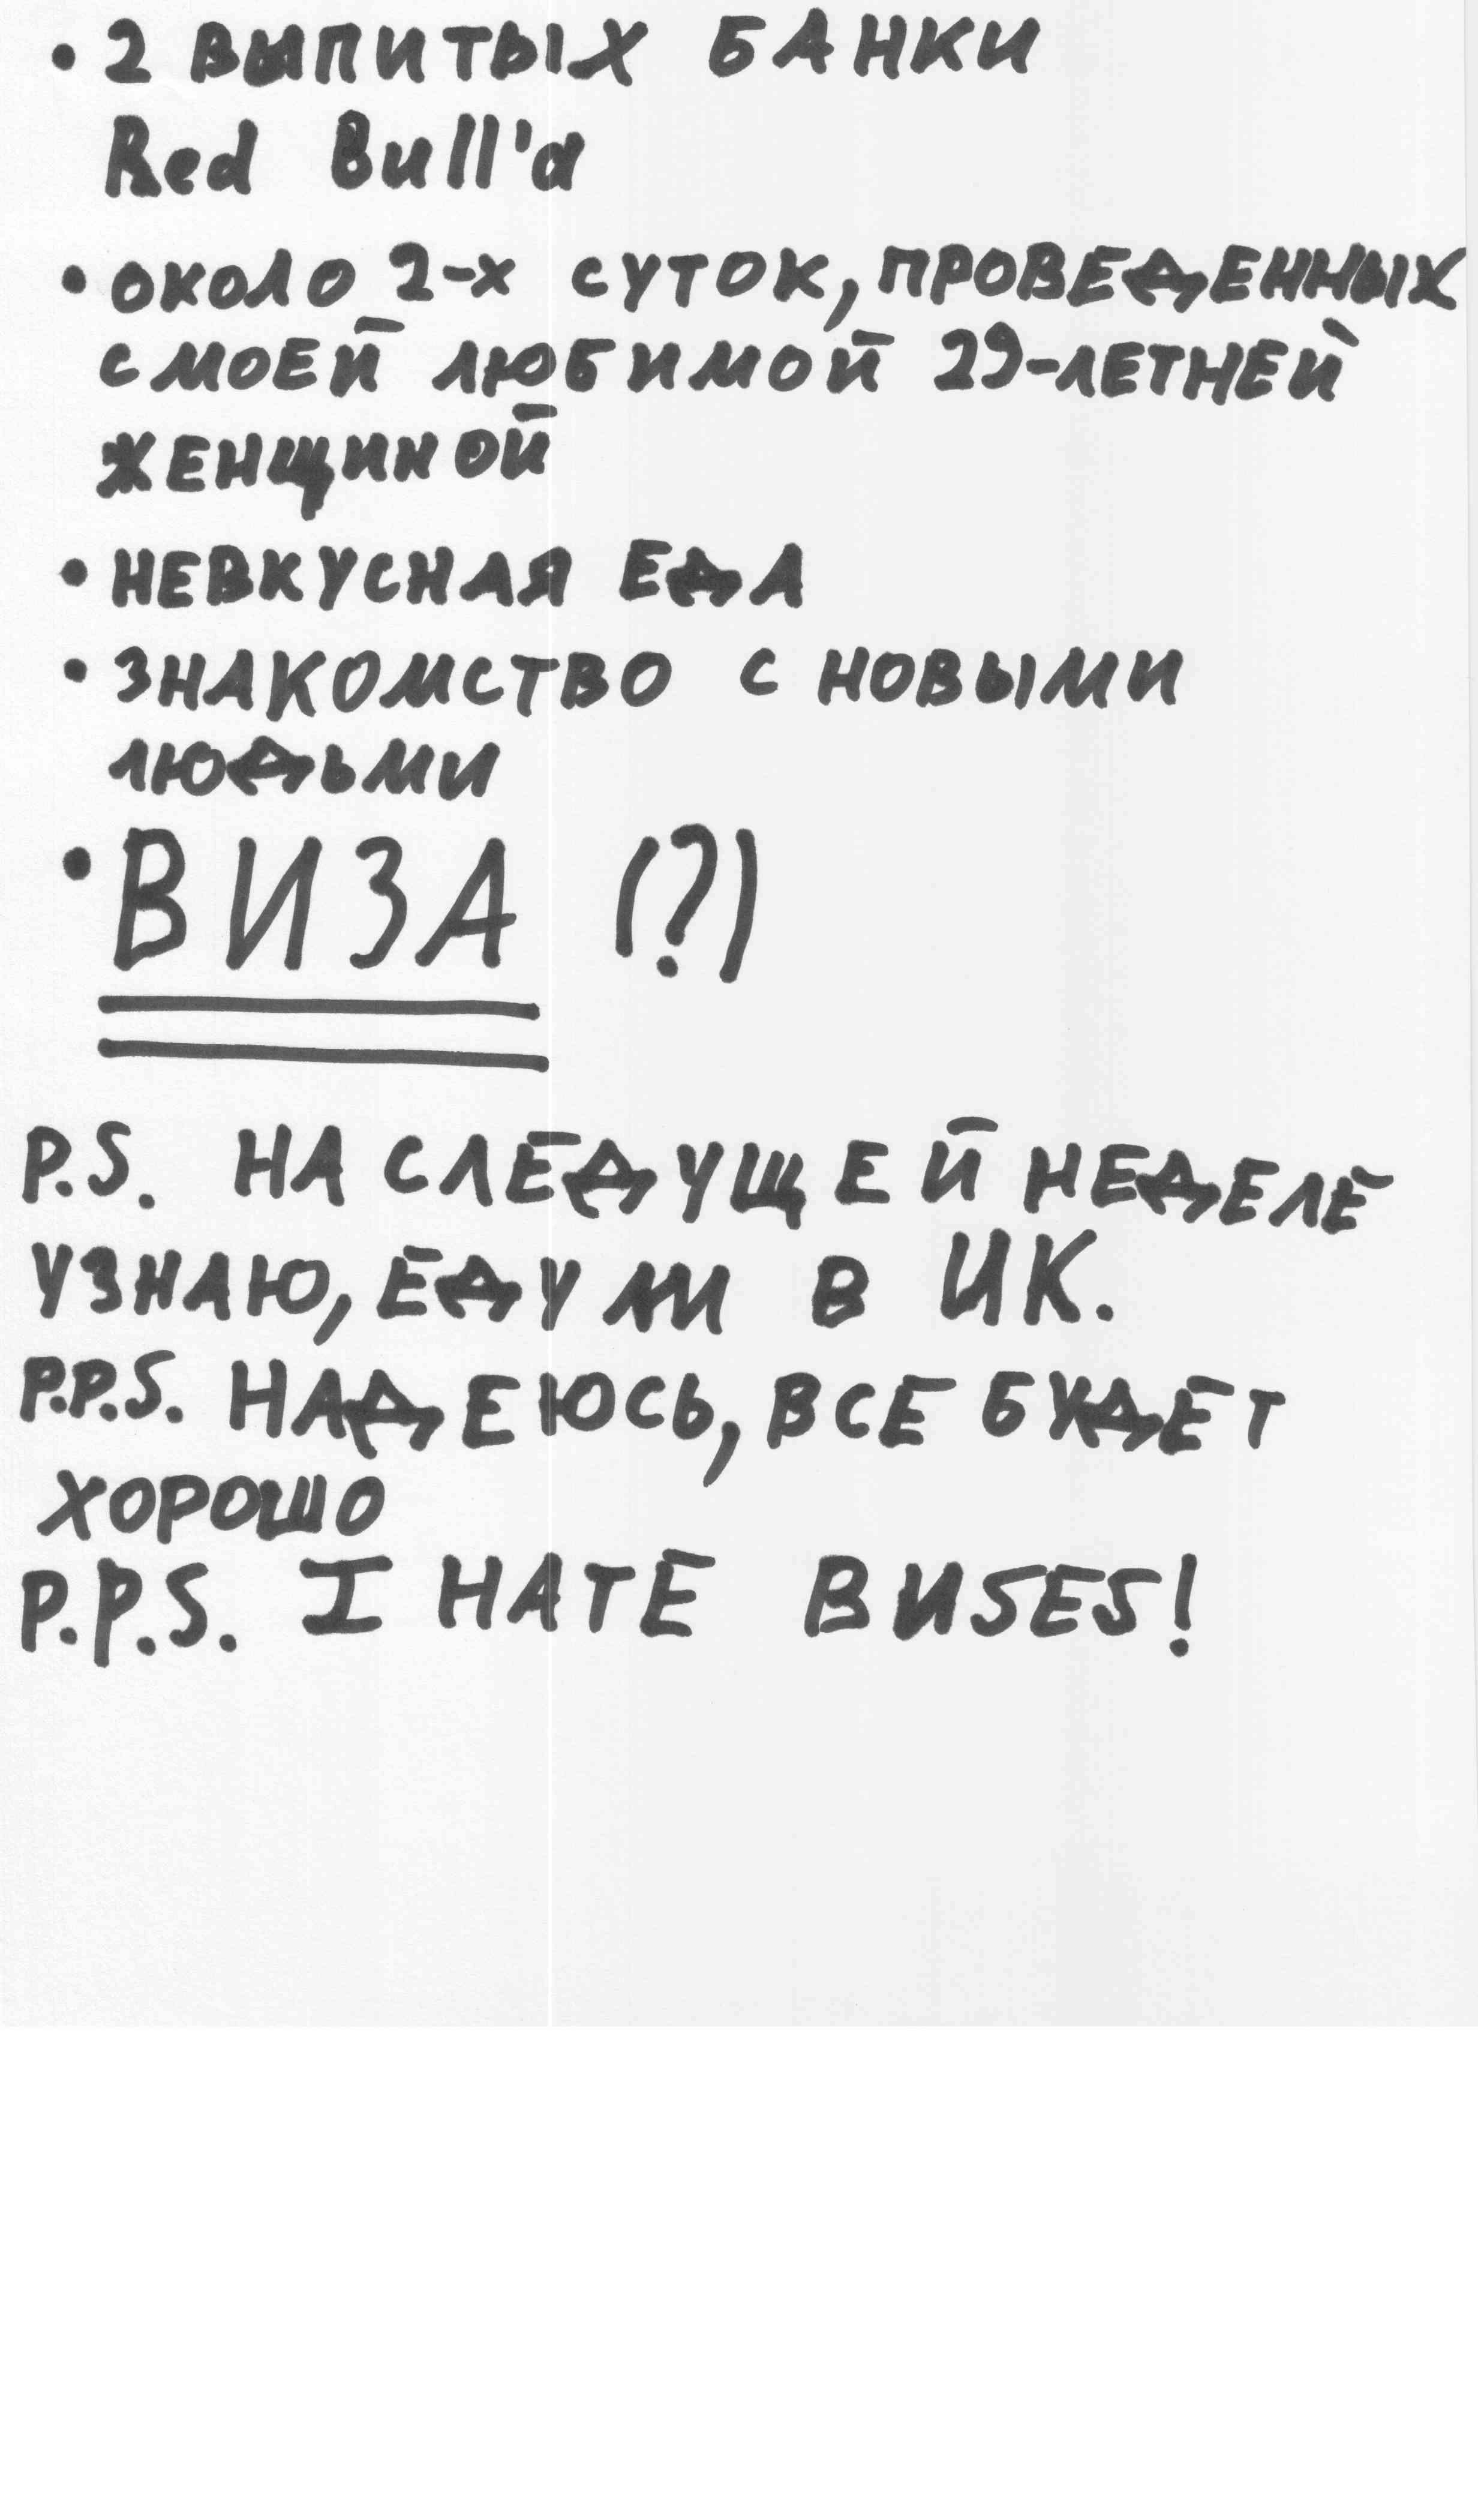 • 2 ВЫПИТЫХ БАНКИ
Red Bull'а
• ОКОЛО 2-Х СУТОК, ПРОВЕДЕННЫХ
С МОЕЙ ЛЮБИМОЙ 29-ЛЕТНЕЙ
ЖЕНЩИНОЙ
• НЕВКУСНАЯ ЕДА
• ЗНАКОМСТВО С НОВЫМИ
ЛЮДЬМИ
• ВИЗА (?)
P.S. НА СЛЕДУЩЕЙ НЕДЕЛЕ
УЗНАЮ, ЕДУ ЛИ В ИК.
P.P.S. НАДЕЮСЬ, ВСЕ БУДЕТ
ХОРОШО
P.P.S. I HATE BUSES!